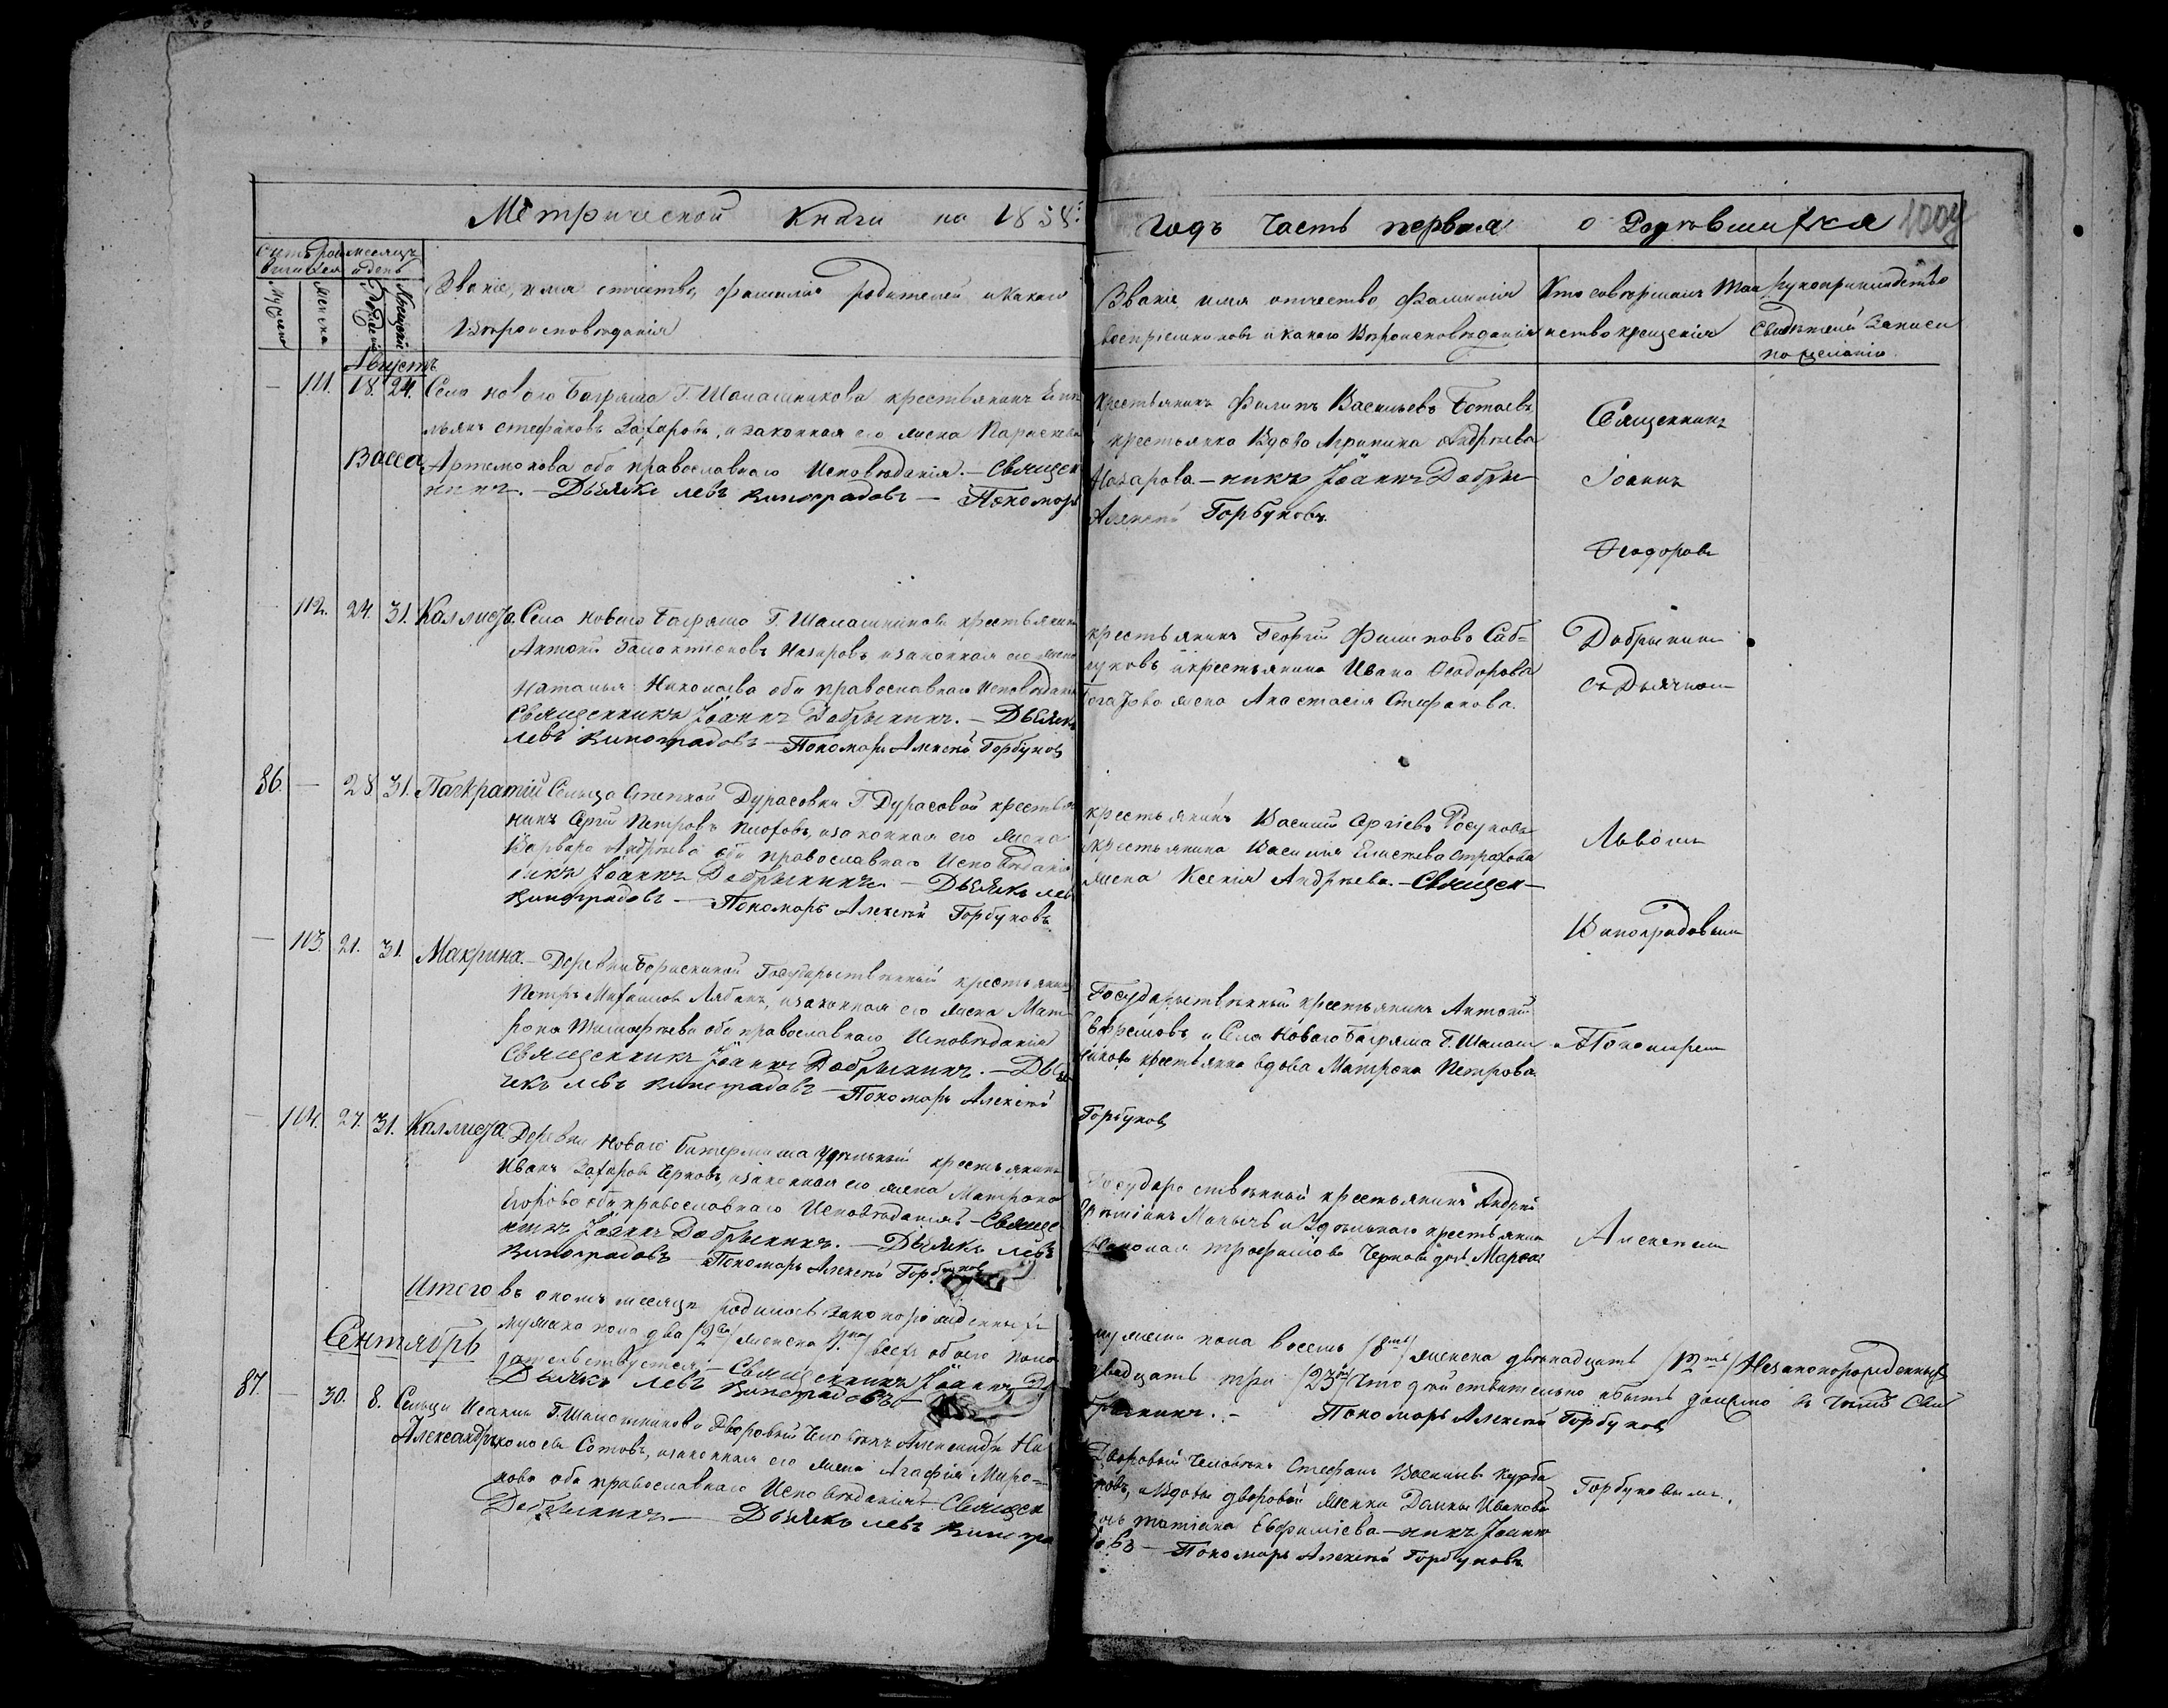 Метрической Книги на 1858:
годъ Часть первая о Родившихся 1004
Счетъ родившихся
Мужеска
Женска
Месяцъ и день
Рожденія
Крещенія
Званіе, имя отчество, фамилія родителей и какого
Вѣроисповѣданія
Званіе имя отчество, Фамилія
воспріемниковъ и какого Вѣроисповѣданія
Кто совершалъ Таи
нство крещенія
Рукоприкладство
Свидѣтелей Записи
по желанію
Августъ
— 111. 18. 24. Васса
Села Новаго Багряша Г. Шалашникова крестьянинъ Емел
льянъ Стефановъ Захаровъ, и законная его жена Параскева
Артемонова оба православнаго Исповѣданія. — Священ
никъ. — Дьячекъ Левъ Виноградовъ — Пономарь
Крестьянинъ Филипъ Васильевъ
и крестьянка Вдова Агрипина Андреева
Назарова — никъ Іоаннъ Добры
Алексѣй Горбуновъ.
Священникъ
Іоаннъ
Ѳеодоровъ
112. 24. 31. Каллиста. Села Новаго Багряша Г. Шалашникова крестьянинъ
Антоній Галактіоновъ Назаровъ и законная его жена
Наталья Николаева оба православнаго Исповѣданія
Священникъ Іоаннъ Добрынинъ. — Дьячекъ
Левъ Виноградовъ — Пономарь Алексѣй Горбуновъ
крестьянинъ Георгій Филиповъ Саб=
луковъ и крестьянина Ивана Ѳеодорова
жена Анастасія Стефанова.
Добрынинъ
съ Дьячкомъ
86. — 28 31. Панкратій Сельца Степной Дурасовки Г. Дурасовой крестья
нинъ Сергій Петровъ, и законная его жена
Варвара Андреева оба православнаго Исповѣданія
никъ Іоаннъ Добрынинъ. — Дьячекъ Левъ
Виноградовъ — Пономарь Алексѣй Горбуновъ
крестьянинъ Василій Сергіевъ
и крестьянина Василія Страхова
жена Ксенія Андреева. — Священ —
Львомъ
Виноградовымъ
— 113. 21. 31. Макрина. — Деревни Государственный крестьянинъ
Петръ Михаиловъ, и законная его жена Мат
рона Тимофѣева оба православнаго Исповѣданія
Священникъ Іоаннъ Добрынинъ. — Дья
чекъ Левъ Виноградовъ — Пономарь Алексѣй
Государственный крестьянинъ Антоній
Ефремовъ и Села Новаго Багряша Г. Шалаш
никова крестьянка вдова Матрона Петрова.
Горбуновъ
Пономаремъ
— 104. 27. 31. Каллиста. Деревни Новаго удѣльный крестьянинъ
Иванъ Захаровъ Черновъ, и законная его жена Матрона
Егорова оба православнаго Исповѣданія — Священ
никъ Іоаннъ Добрынинъ. — Дьячекъ Левъ
Виноградовъ — Пономарь Алексѣй Горбуновъ
Государственный крестьянинъ Андрей
и Удѣльнаго крестьянина
Трофимова Чернова дочь
Алексѣемъ
Итого въ ономъ месяцѣ родилось Законорожденныхъ
мужеска пола восемь /8мь/ женска двѣнадцать /12ть/ Незаконорожденныхъ
мужеска пола два /2ва/ женска /1на/ всехъ обоего пола
двадцать три /23ри/ Что дѣйствительно въ томъ Сви
детельствуется — Священникъ Іоаннъ До
брынинъ. — Пономарь Алексѣй Горбуновъ
Дьячекъ Левъ Виноградовъ —
Сентябрь
87. — 30. 8. Александръ
Сельца Исаклы Г. Шалашникова Дворовый Человѣкъ Александръ Ни
колаевъ Сотовъ, и законная его жена Агафія Миро=
нова оба православнаго Исповѣданія — Священ
Добрынинъ — Дьячекъ Левъ Виногра
Дворовый Человѣкъ Стефанъ Васильевъ Курба
товъ, и Вдовы дворовой женки Домны Ивановой
дочь Татіана Евфиміева — никъ Іоаннъ
довъ — Пономарь Алексѣй Горбуновъ
Горбуновымъ.